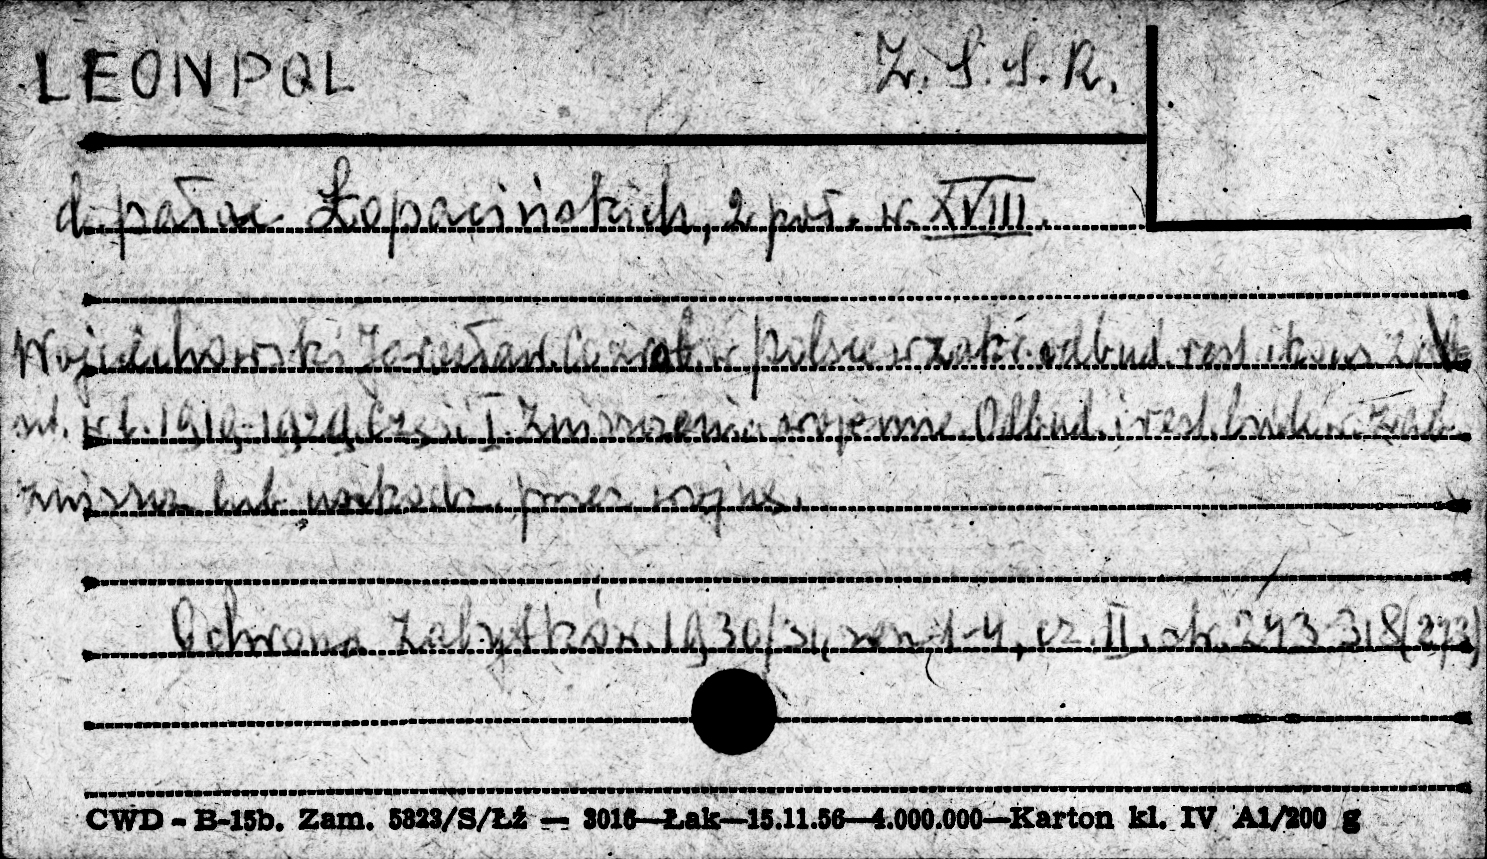 LEONPOL Z.S.S.R.
d. pałac Łopacińskich, 2 poł. w. XVIII.
Wojciechowski Jarosław. Co zrob. w Polsce w zakr. odbud. rest. i kons. zab.
szt. w l. 1919-1929. Część I. Zniszczenia wojenne. Odbud. i rest. budow. zab.
zniszcz. lub uszkodz. przez wojnę.
Ochrona Zabytków. 1930/31, zesz. 1-4, cz. II. str. 243-318 (273)
CWD - B-15b. Zam. 5323/S/Łź — 3016—Łak—15.11.56—4.000.000—Karton kl. IV A1/200 g